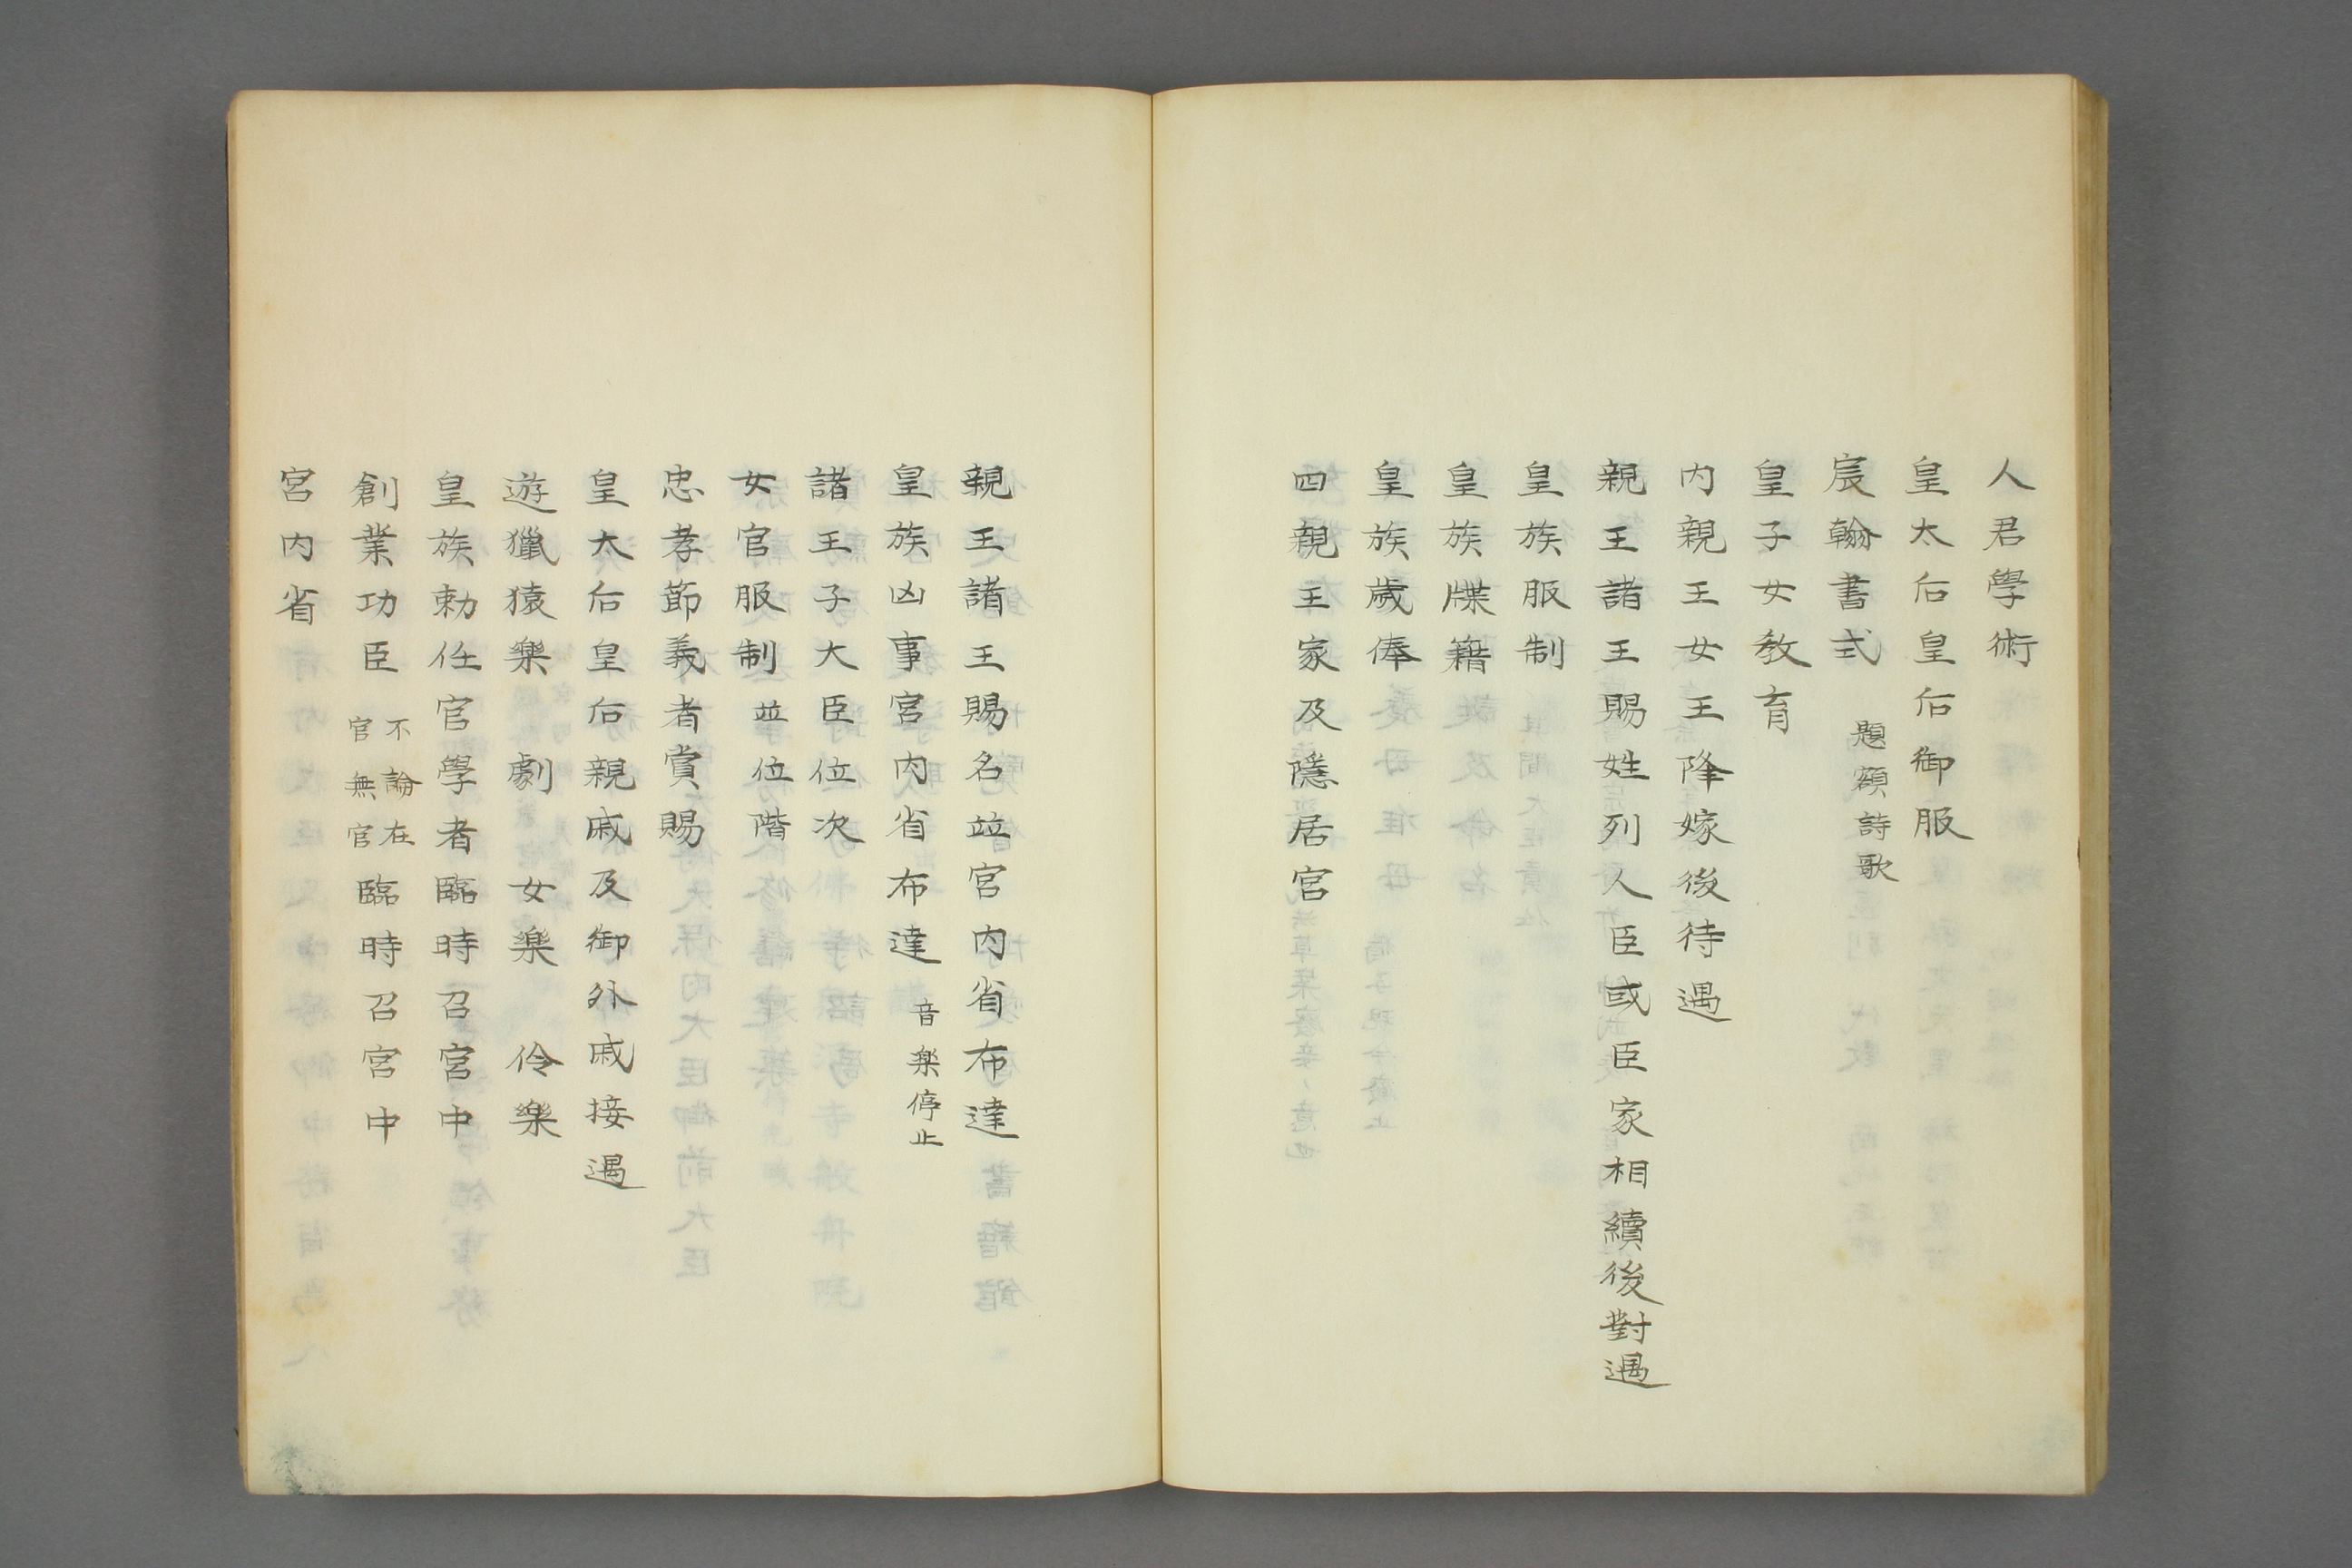 人君學術
皇太后皇后御服
宸翰書式 題額詩歌
皇子女教育
内親王女王降嫁後待遇
親王諸王賜姓列人臣或臣家相續後對遇
皇族服制
皇族牒籍
皇族歲俸
四親王家及隱居宮
親王諸王賜名竝宮内省布達
皇族凶事宮内省布達 音楽停止
諸王子大臣位次
女官服制 並位階
忠孝節義者賞賜
皇太后皇后親戚及御外戚接遇
遊獵猿樂 劇 女樂 伶樂
皇族勅任官學者臨時召宮中
創業功臣 不論在官無官 臨時召宮中
宮内省